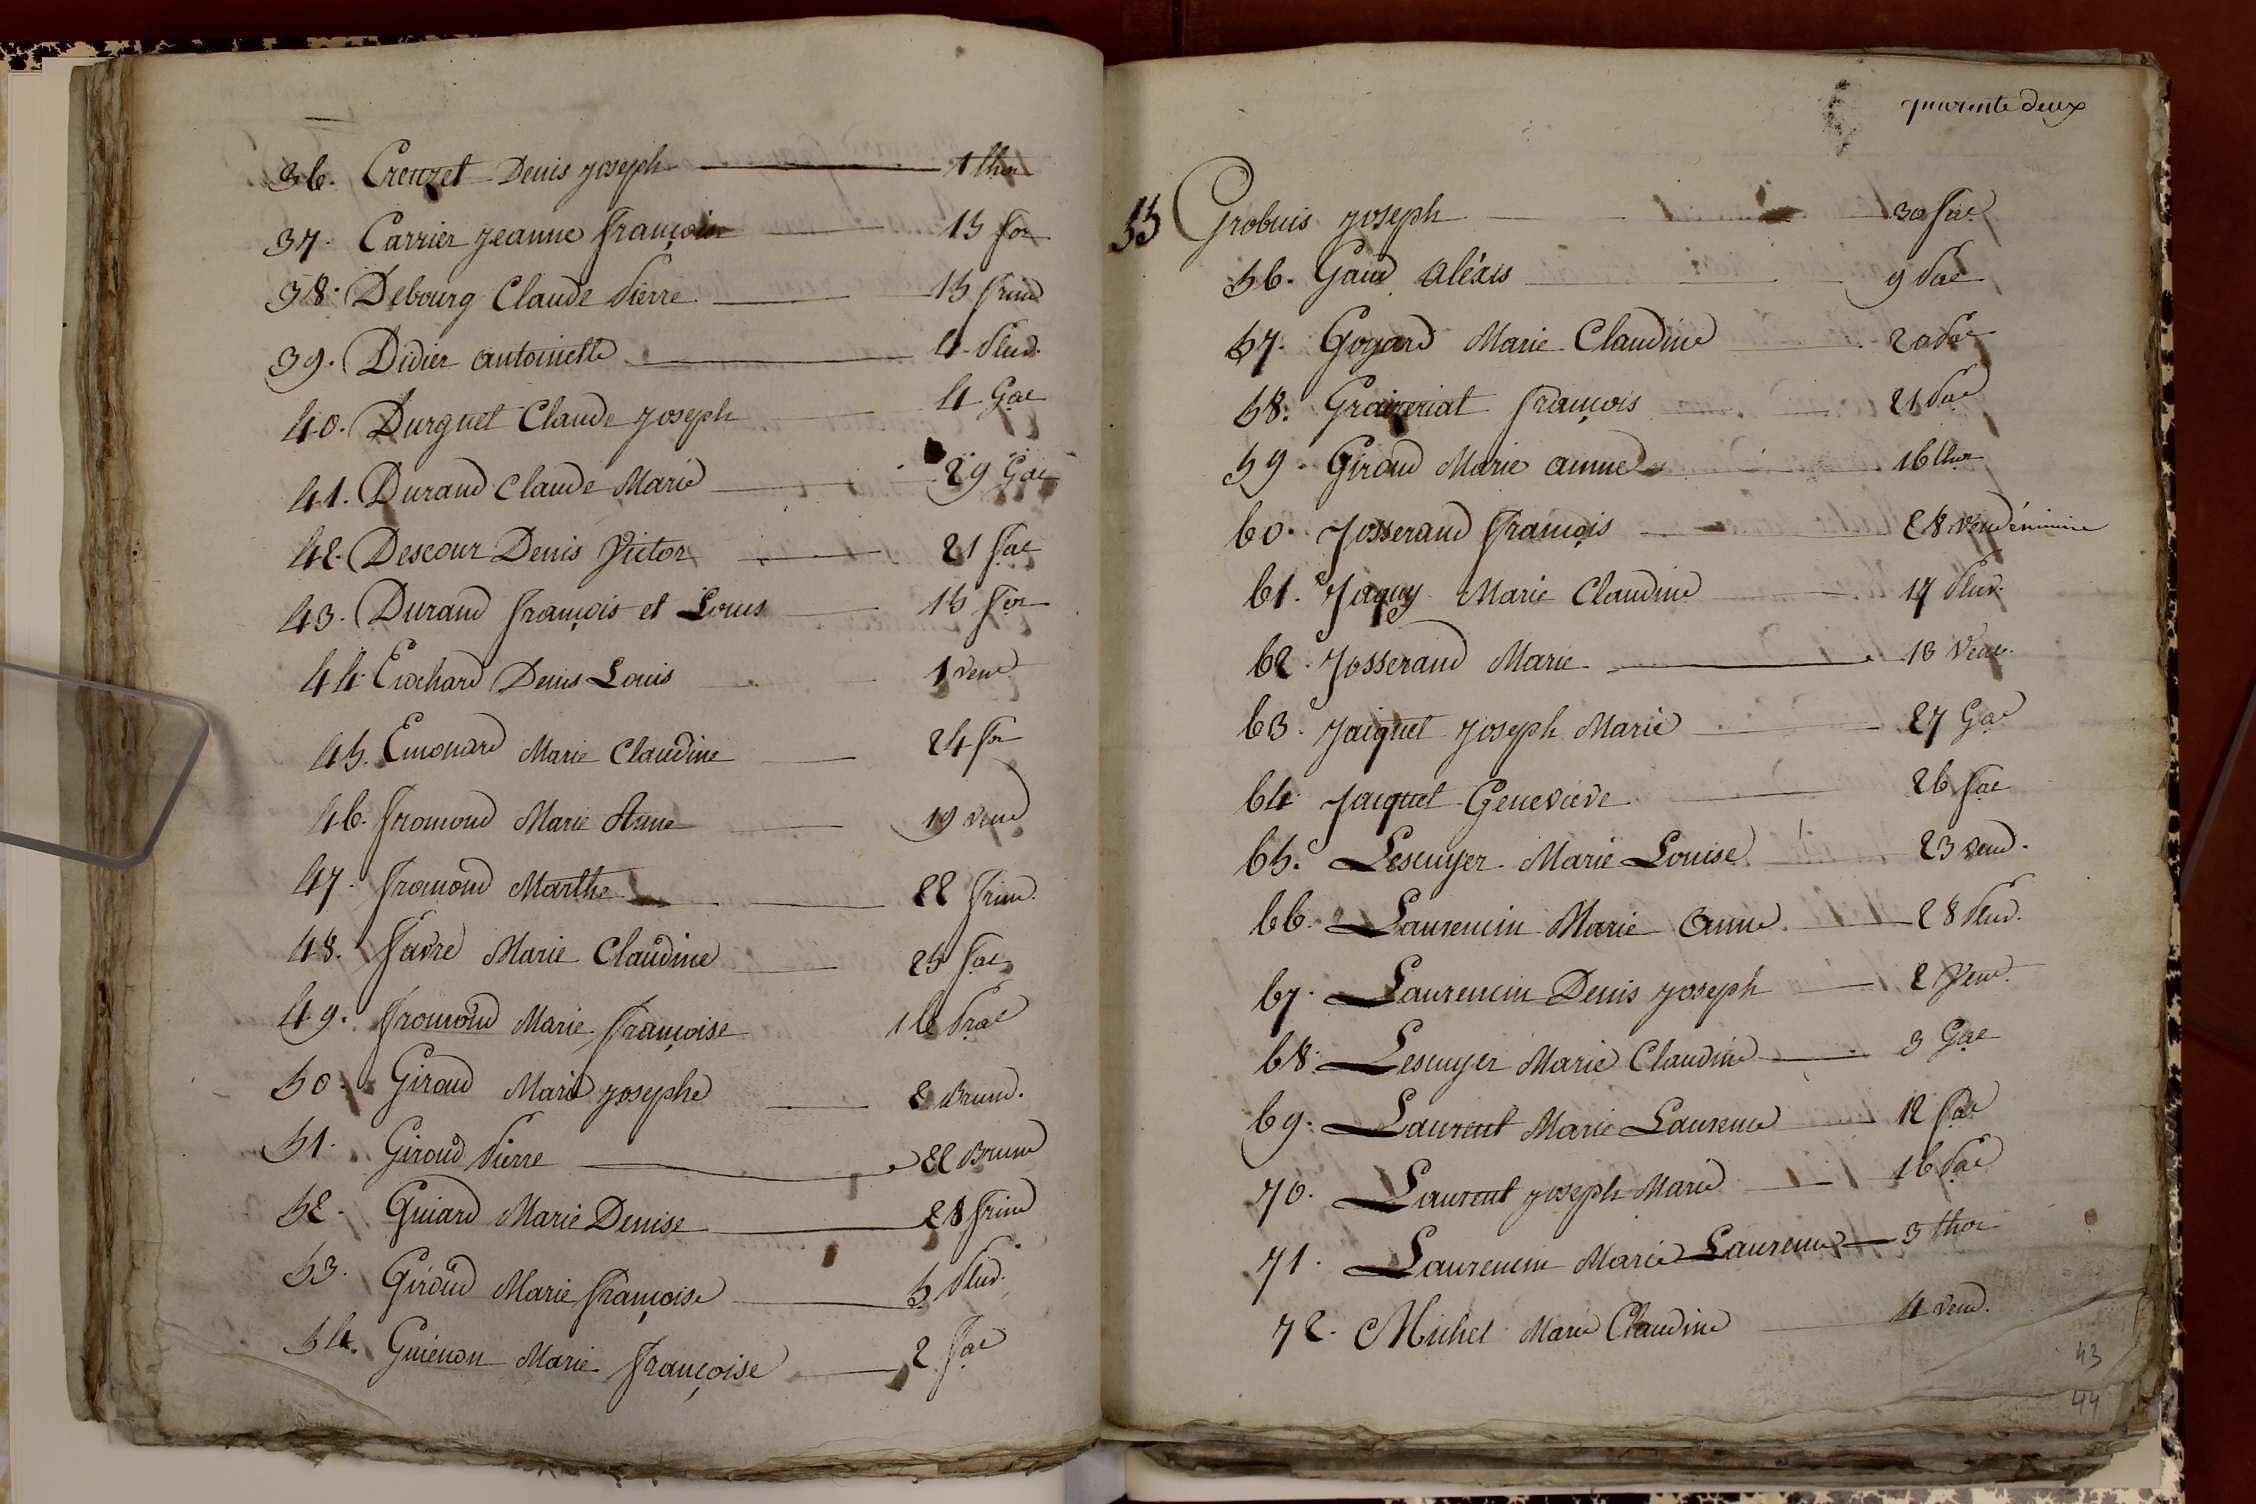 36. Creuzet Denis joseph 1 ther
37. Carrier jeanne françoise 15 flor
38. Debourg Claude Pierre 15 frim
39. Didier antoinette 4 Pluv.
40. Durguet Claude joseph 4 Gal
41. Durand Claude Marie 29 Gal
42. Descour Denis Victor 21 fal
43. Durand françois et Louis 15 flor
44. Erochard Denis Louis 1 vent
45. Emonard Marie Claudine 24 flor
46. fromond Marie Anne 19 vend
47. fromond Marthe 22 frim.
48. favre Marie Claudine 25 fal
49. fromond Marie françoise 16 Pral
50. Giroud Marie josephe 2 Brum.
51. Giroud Pierre 22 Brum
52. Guiard Marie Denise 28 frim
53. Giroud Marie françoise 5 Pluv.
54. Guienon Marie françoise 2 fal
quarente deux
55 Grobuis joseph 30 fal
56. Gaud Aléxis 9 Pal
57. Goyard Marie Claudine 20 Pal
58. françois 21 Pal
59. Giroud Marie anne 16 ther
60. Josserand françois 28 vendémiaire
61. Jaquy Marie Claudine 17 Pluv.
62. Josserand Marie 13 Vent.
63. Jaiquet joseph Marie 27 Gal
64 Jaiquet Geneviève 26 fal
65. Lescuyer Marie Louise 23 vend.
66. Laurencin Marie Anne 28 Pluv.
67. Laurencin Denis joseph 2 Vent.
68. Lescuyer Marie Claudine 3 Gal
69. Laurent Marie Laurence 12 fal
70. Laurent joseph Marie 16 Pal
71. Laurencin Marie Laurence 3 ther
72. Michel Marie Claudine 4 vend.
43
44